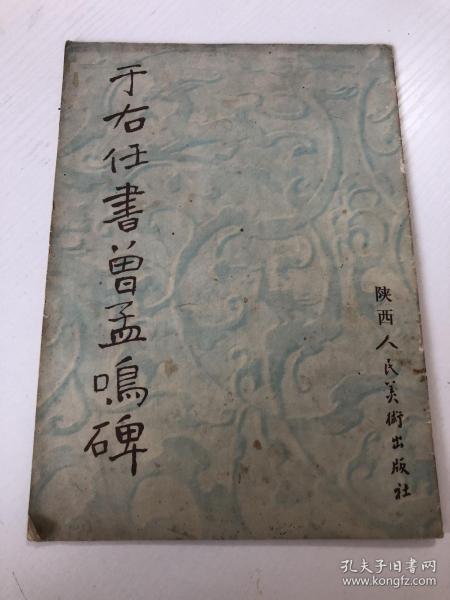 于右任書曾孟鳴碑
陕西人民美術出版社
孔夫子旧书网
www.kongfz.com